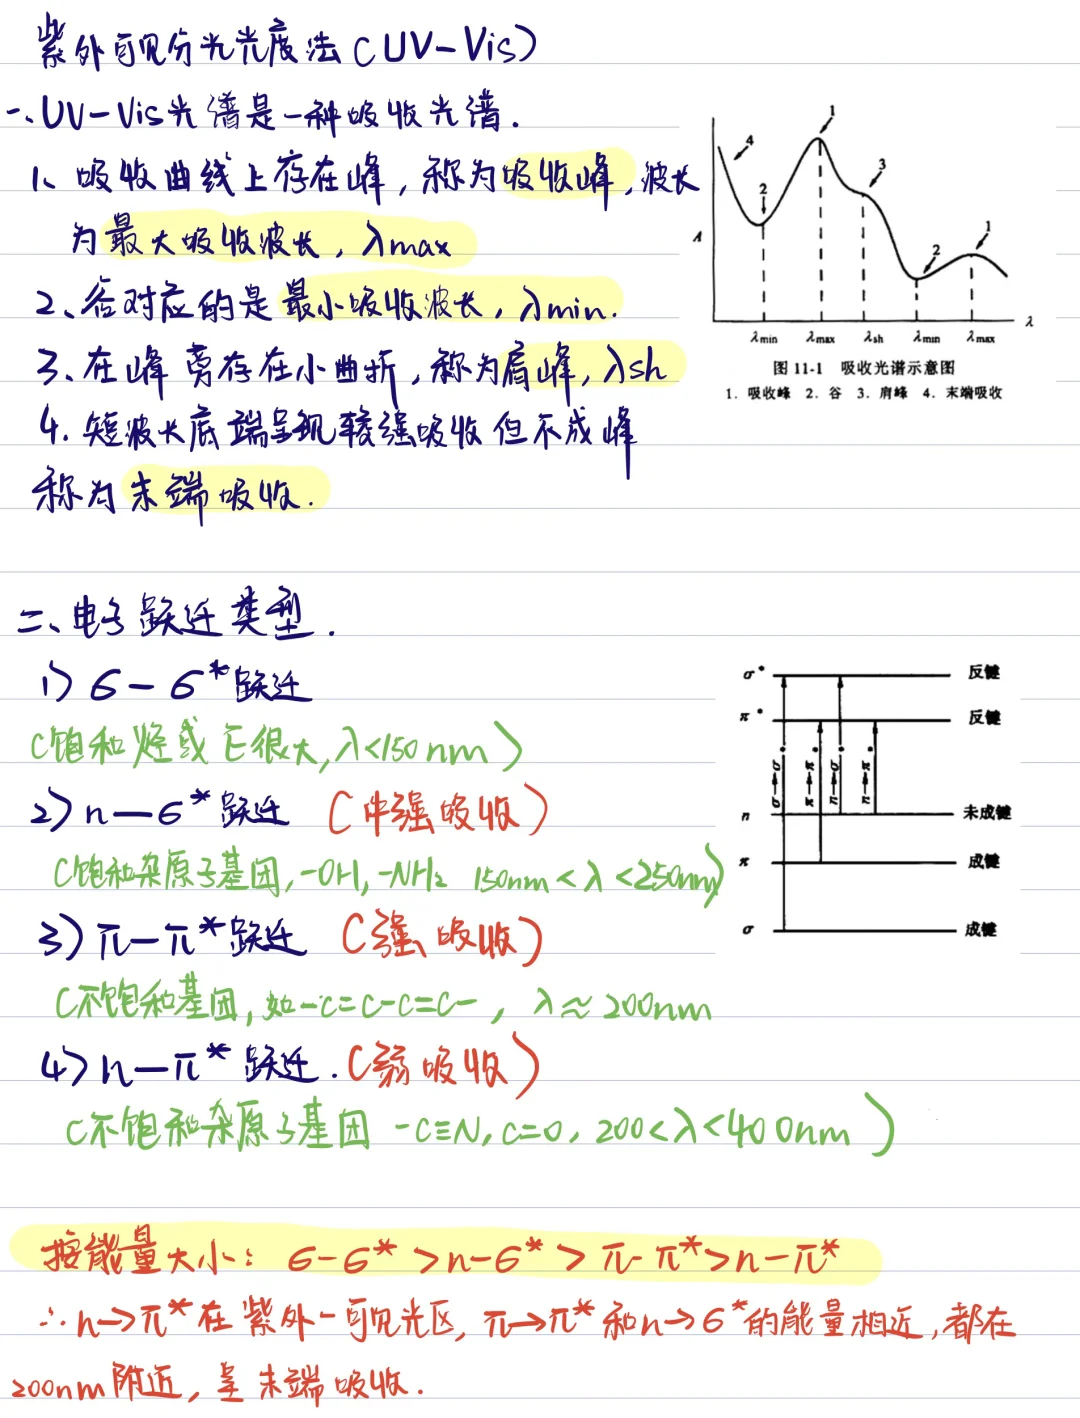 紫外可见分光光度法(UV-Vis)
一、UV-Vis光谱是一种吸收光谱.
1、吸收曲线上存在峰,称为吸收峰,波长
为最大吸收波长,λmax
2、谷对应的是最小吸收波长,λmin.
3、在峰旁存在小曲折,称为肩峰,λsh
4.短波长底端呈现较强吸收但不成峰
称为末端吸收.
4 1 3 2 2 1
A
λmin λmax λsh λmin λmax λ
图 11-1 吸收光谱示意图
1. 吸收峰 2. 谷 3. 肩峰 4. 末端吸收
二、电子跃迁类型.
1) σ-σ*跃迁
(饱和烃或E很大,λ<150nm)
2) n-σ*跃迁 (中强吸收)
(饱和杂原子基团,-OH,-NH2 150nm<λ<250nm)
3) π-π*跃迁 (强吸收)
(不饱和基团,如-C=C-C=C-, λ≈200nm
4) n-π*跃迁.(弱吸收)
(不饱和杂原子基团 -C≡N,C=O,200<λ<400nm)
σ* 反键
π* 反键
σ→σ* π→π* n→σ* n→π*
n 未成键
π 成键
σ 成键
按能量大小:σ-σ*>n-σ*>π-π*>n-π*
∴n→π*在紫外-可见光区,π→π*和n→σ*的能量相近,都在
200nm附近,呈末端吸收.